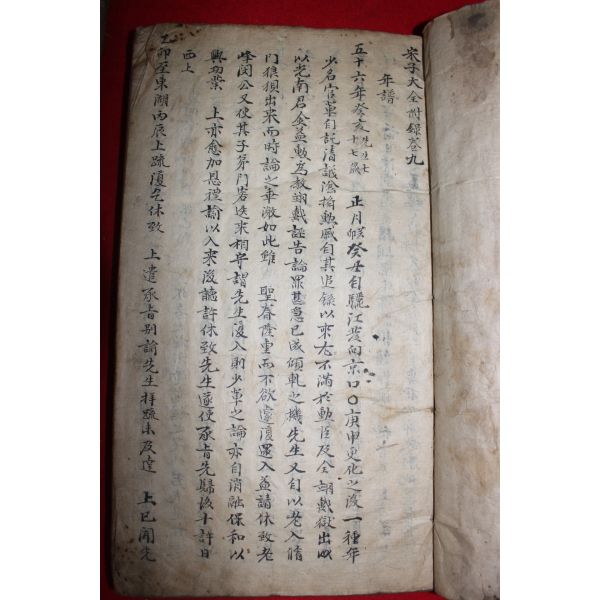 宋子大全附録卷九
年譜
五十六年癸亥先生七十七歲 正月戊朔癸丑自驪江發向京口○庚申更化之後一種年
少名官輩自託清議陰搆勳戚自其追錄以來尤不滿於勳臣及全翊戴獄出以
以光南君金益勳爲教翊戴誣告論罪甚急已成傾軋之機先生又自以老入脩
門狼狽出來而時論之乖激如此雖 聖眷隆重而不欲遽復還入並請休致老
峰閔公又使其子弟門客迭來相守謂先生復入則少輩之論亦自消融保和以
興功業 上亦愈加恩禮諭以入來後議許休致先生遂使承旨先歸後十許日
西上
乙卯至東湖丙辰上疏復乞休致 上遣承旨別諭先生拜疏未及達 上已聞先